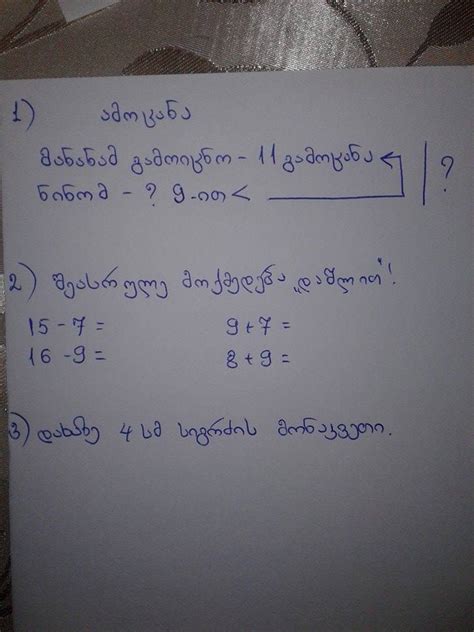 1) ამოცანა
მანანამ გამოიცნო - 11 გამოცანა
ნინომ - ? 9-ით < ?
2) შეასრულე მოქმედება „დაშლით"!
15 - 7 = 9 + 7 =
16 - 9 = 8 + 9 =
3) დახაზე 4 სმ სიგრძის მონაკვეთი.